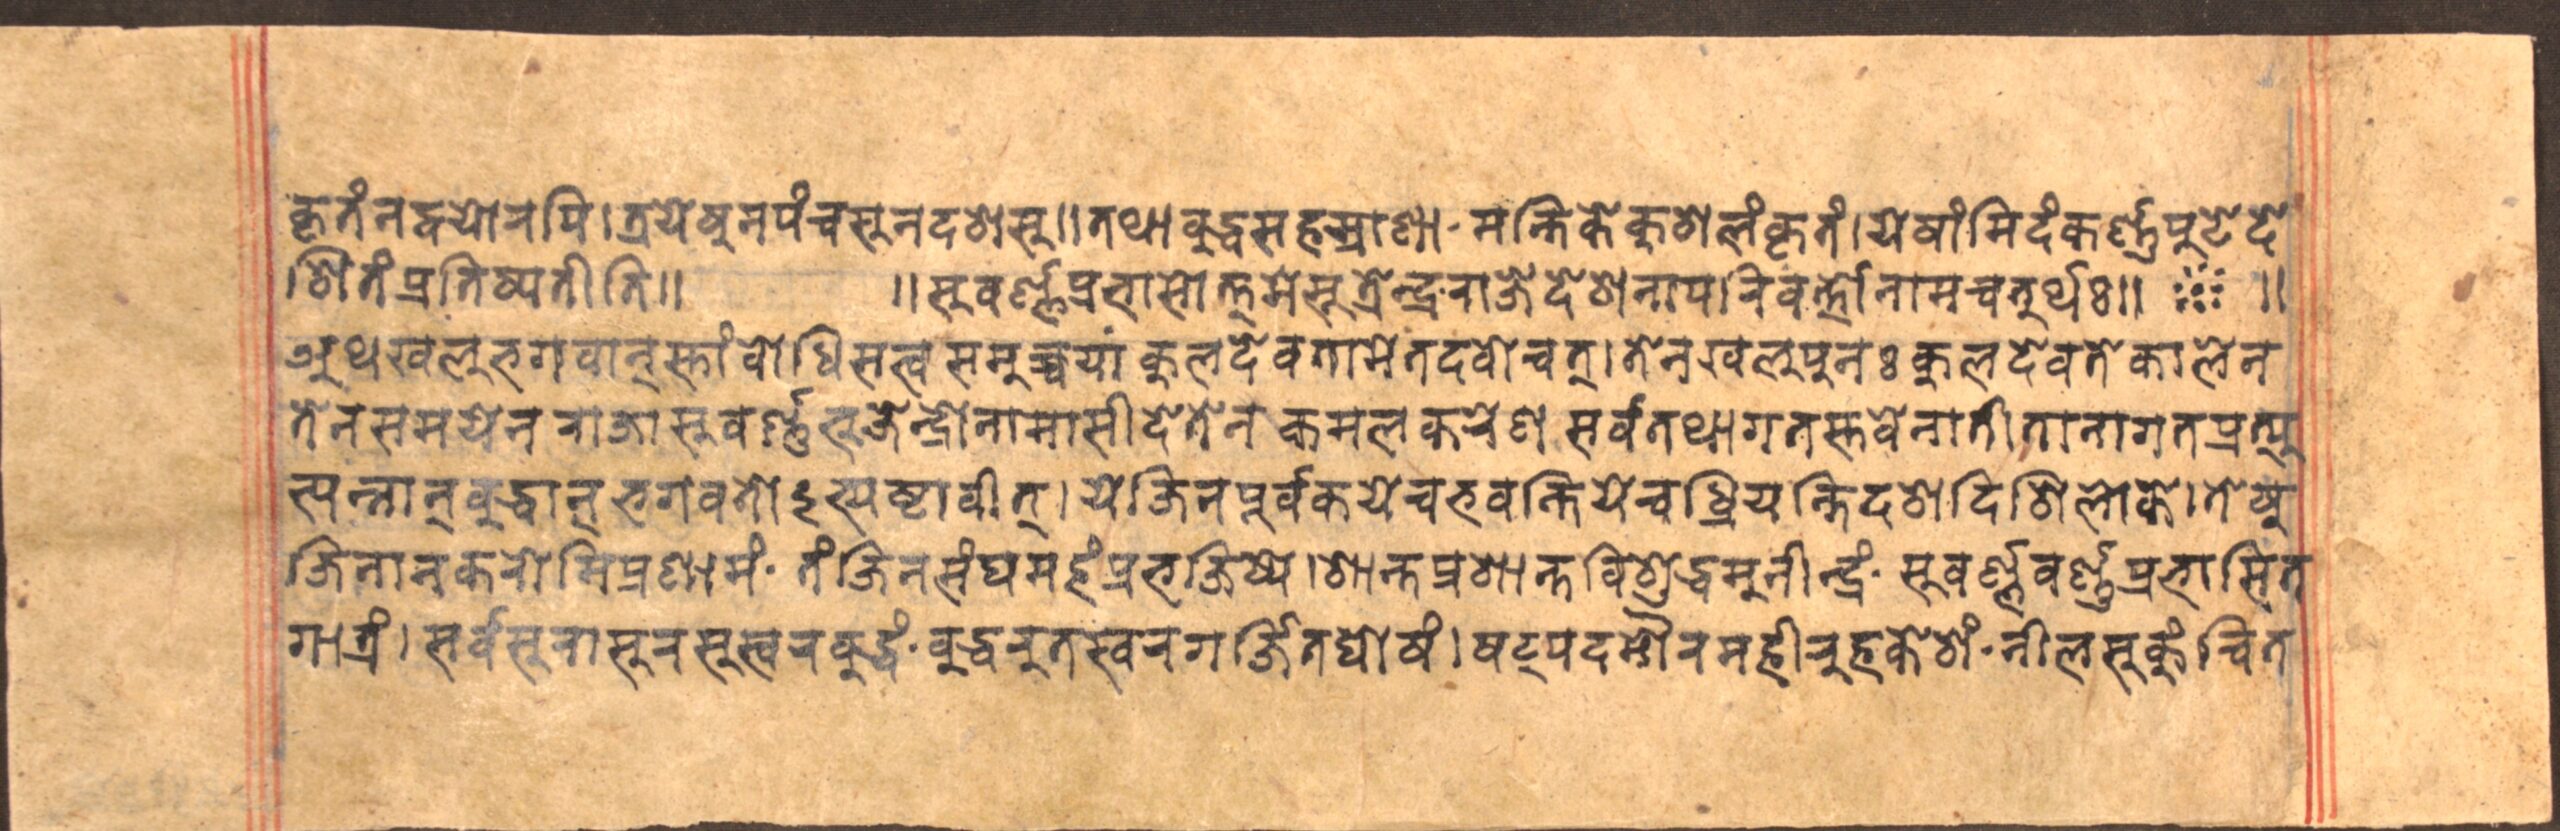 कृतंनद्वयोरपि।त्रयेषुनपंचसूनदशसु॥तथावुद्धसहस्राणा·मन्तिकेकुशलंकृतं।येषांमिदंकर्ण्णपुटेदे
शितंप्रतिष्यतीति॥ ॥सुवर्ण्णप्रभासोत्तमेसुत्रेन्द्रराजेदेशनापरिवर्त्तोनामचतुर्थः॥ ॥
अथखलुभगवान्स्तांवोधिसत्वसमुच्चयांकुलदेवतामेतदवोचत्।तेनखलुपुनःकुलदेवतेकालेन
तेनसमयेनराजासुवर्ण्णभुजेन्द्रोनामासीदेतेनकमलकरेणसर्वतथागतस्तवेनातीतानागतप्रत्यु
त्पन्नान्वुद्धान्भगवतोऽभ्यष्टावीत्।येजिनपूर्वकयेचभवन्तियेचध्रियन्तिदशदिशिलोके।तेषु
जिनानकरोमिप्रणामं·तंजिनसंघमहंप्रभजिष्ये।शान्तप्रशान्तविशुद्धमुनीन्द्रं·सुवर्ण्णवर्ण्णप्रभासित
गात्रं।सर्वसुरासुरसुस्वरवुद्धं·वुद्धरुतस्वरगर्जितघोषं।षट्पदमौरमहीरुहकेशं·नीलसुकुंचित